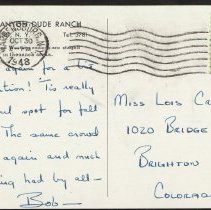 ANYON DUDE RANCH
N. Y.
OCT 30
1948
Tel. 3781
again for a
ation! Tis really
nd spot for fall
The same crowd
again and much
ing had by all -
Bob -
Miss Lois Cr
1020 Bridge
Brighton
Colorad